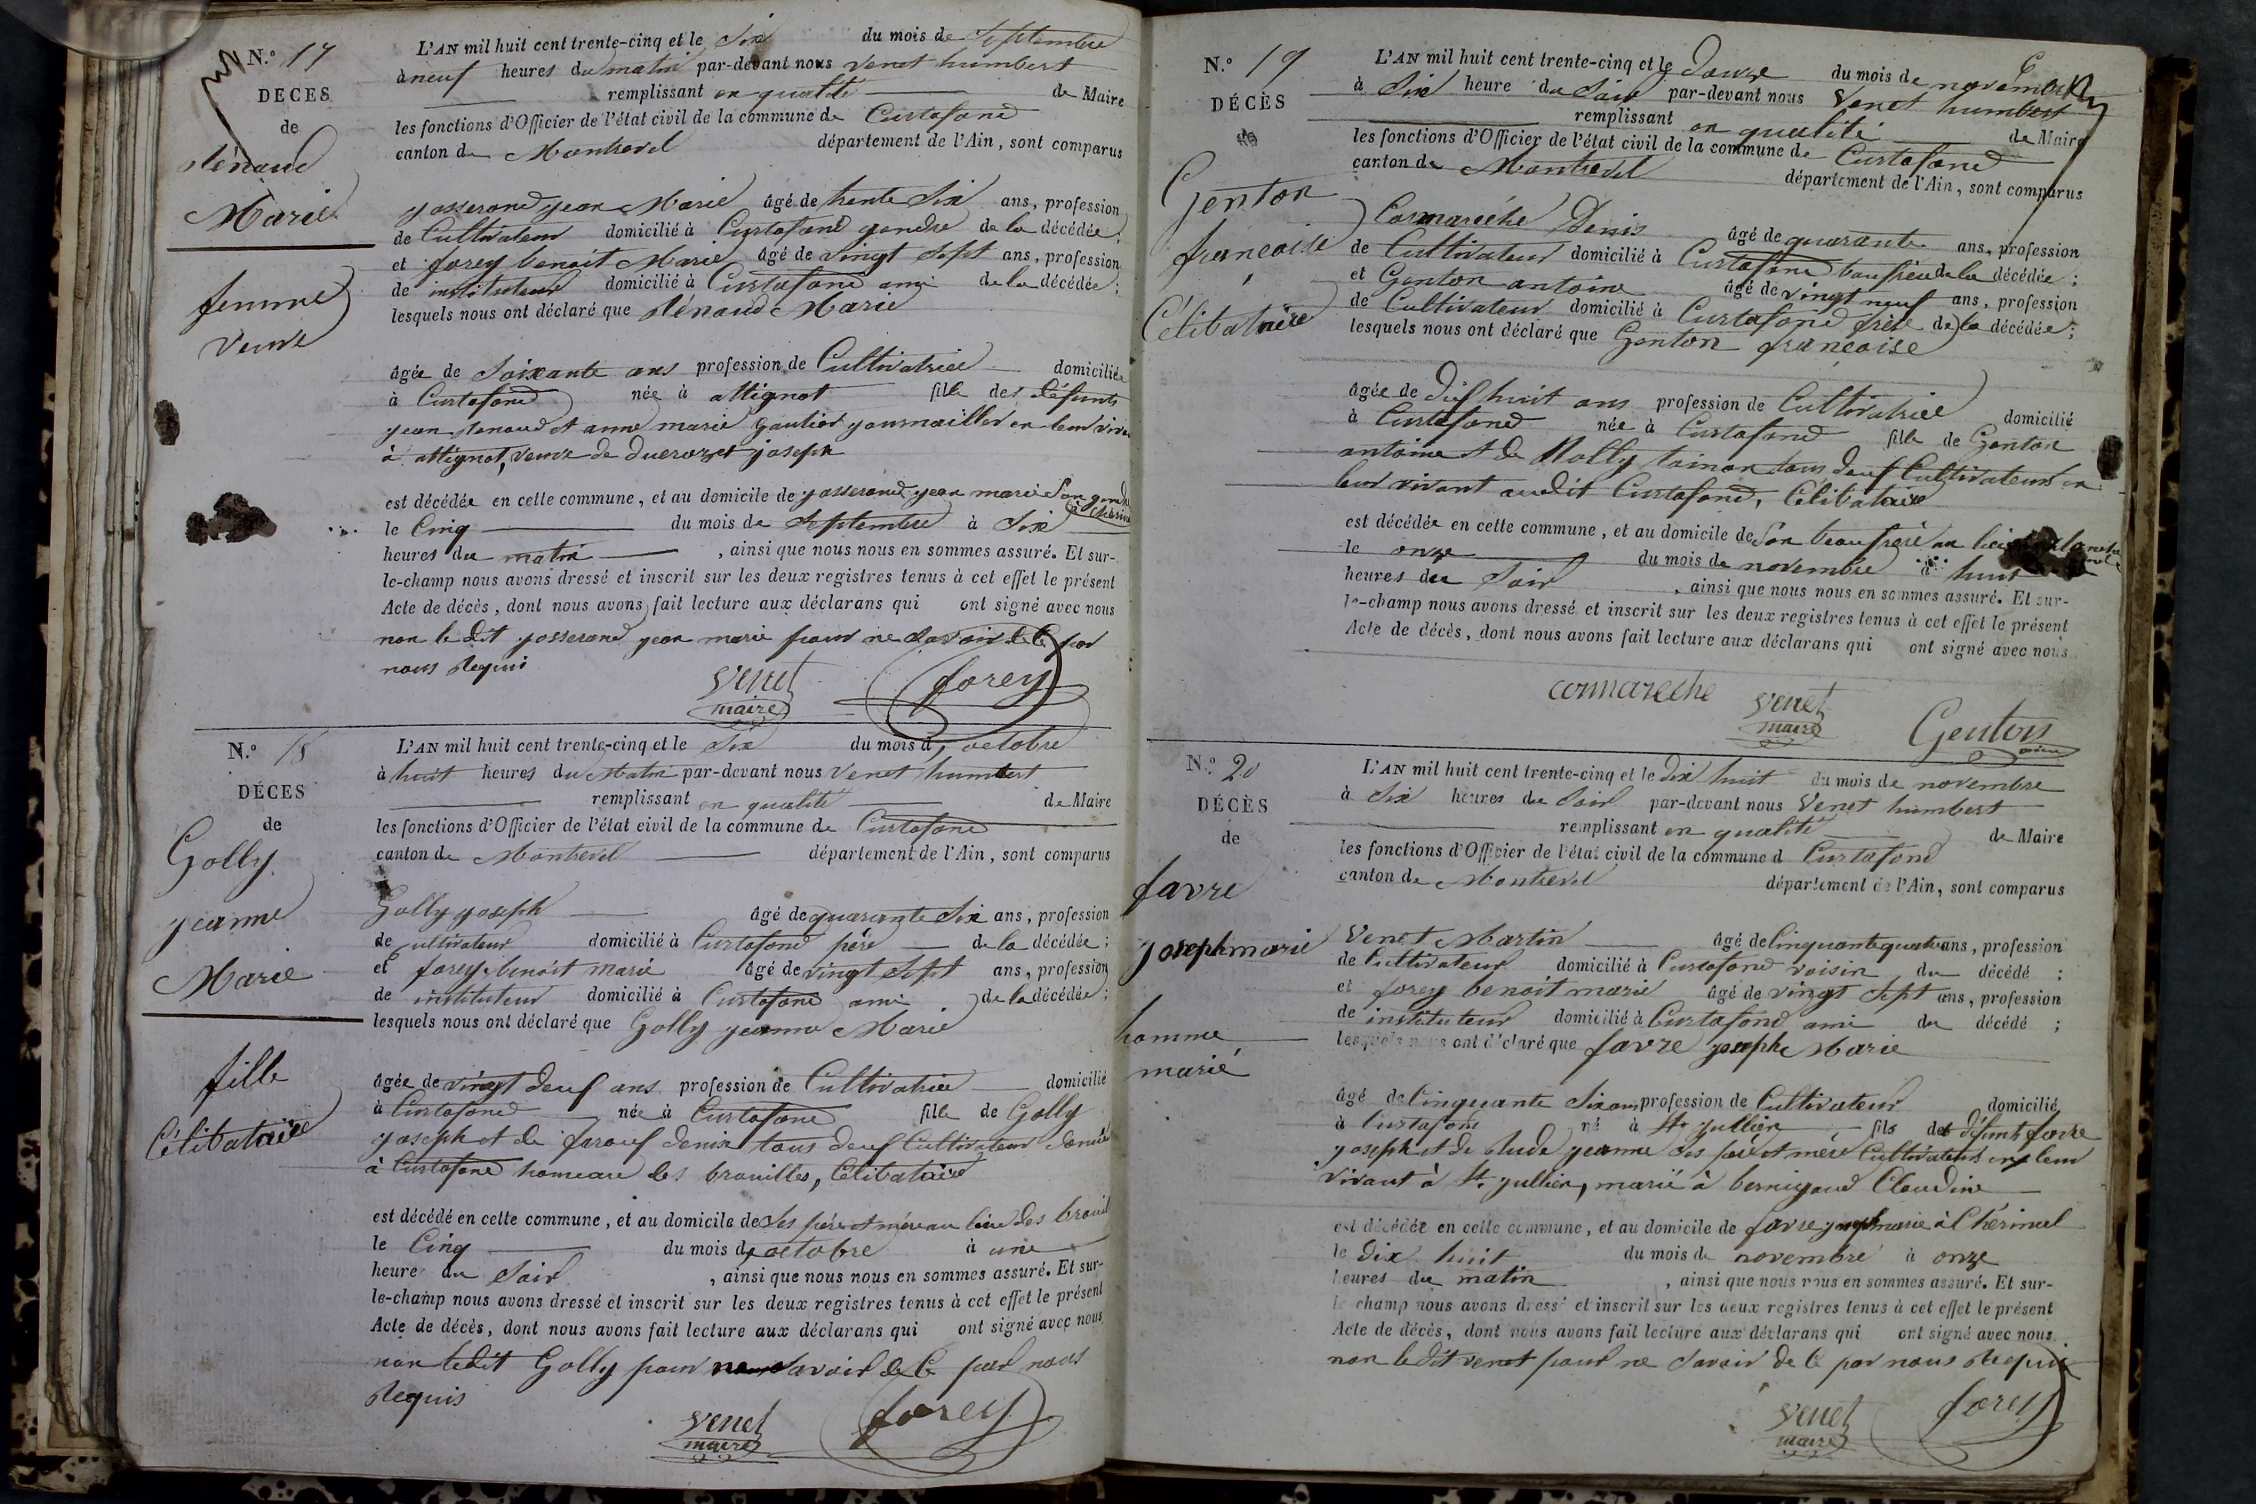 N.º 17
DECES
de
Rénaud
Marie
femme
veuve
L'AN mil huit cent trente-cinq et le Six du mois de Septembre
à neuf heures du matin par-devant nous Venet humbert
remplissant en qualité de Maire
les fonctions d'Officier de l'état civil de la commune de Curtafond
canton de Montrevel département de l'Ain, sont comparus
josserand jean Marie âgé de trente Six ans, profession
de Cultivateur domicilié à Curtafond gendre de la décédée;
et forey benoit Marie âgé de vingt Sept ans, profession
de instituteur domicilié à Curtafond ami de la décédée;
lesquels nous ont déclaré que Rénaud Marie
âgée de Soixante ans profession de Cultivatrice domiciliée
à Curtafond née à attignat fille des défunts
jean Renaud et anne marie gautier journaillier en leur vivan
à attignat, veuve de joseph
est décédée en cette commune, et au domicile de josserand jean marie Son gendre
le Cinq du mois de Septembre à Six
heures du matin, ainsi que nous nous en sommes assuré. Et sur-
le-champ nous avons dressé et inscrit sur les deux registres tenus à cet effet le présent
Acte de décès, dont nous avons fait lecture aux déclarans qui ont signé avec nous
non le dit josserand jean marie pour ne Savoir de Ce par
nous Requis
Venet
maire
forey
N.º 18
DÉCES
de
Golly
jeanne
Marie
fille
Célibataire
L'AN mil huit cent trente-cinq et le Six du mois d'octobre
à huit heures du Matin par-devant nous Venet humbert
remplissant en qualité de Maire
les fonctions d'Officier de l'état civil de la commune de Curtafond
canton de Montrevel département de l'Ain, sont comparus
Golly joseph âgé de quarante Six ans, profession
de cultivateur domicilié à Curtafond père de la décédée;
et forey benoit marie âgé de vingt Sept ans, profession
de instituteur domicilié à Curtafond ami de la décédée;
lesquels nous ont déclaré que Golly jeanne Marie
âgée de vingt deuf ans profession de Cultivatrice domicilié
à Curtafond née à Curtafond fille de Golly
joseph et de denise tous deuf Cultivateur
à Curtafond hameau des brouilles, Célibataire
est décédé en cette commune, et au domicile de Ses père et mère au lieu des brouil
le Cinq du mois d'octobre à une
heure du Soir, ainsi que nous nous en sommes assuré. Et sur-
le-champ nous avons dressé et inscrit sur les deux registres tenus à cet effet le présent
Acte de décès, dont nous avons fait lecture aux déclarans qui ont signé avec nous
non ledit Golly pour ne Savoir de Ce par nous
Requis
Venet
maire
forey
N.º 19
DÉCÈS
de
Genton
francoise
Célibataire
L'AN mil huit cent trente-cinq et le Douze du mois de novembre
à Six heure du Soir par-devant nous Venet humbert
remplissant en qualité de Maire
les fonctions d'Officier de l'état civil de la commune de Curtafond
canton de Montrevel département de l'Ain, sont comparus
Cormareche Denis âgé de quarante ans, profession
de Cultivateur domicilié à Curtafond beau frère de la décédée;
et Genton antoine âgé de vingt neuf ans, profession
de Cultivateur domicilié à Curtafond frère de la décédée;
lesquels nous ont déclaré que Genton francoise
âgée de dif huit ans profession de Cultivatrice domicilié
à Curtafond née à Curtafond fille de Genton
antoine et de Molly toinon tous deuf Cultivateurs en
leur vivant audit Curtafond, Célibataire
est décédée en cette commune, et au domicile de Son beau frère au lieu
le onze du mois de novembre à huit
heures du Soir, ainsi que nous nous en sommes assuré. Et sur-
le-champ nous avons dressé et inscrit sur les deux registres tenus à cet effet le présent
Acte de décès, dont nous avons fait lecture aux déclarans qui ont signé avec nous
cormareche
Venet
maire
Genton
N.º 20
DÉCÈS
de
favre
joseph marie
homme
marié
L'AN mil huit cent trente-cinq et le dix huit du mois de novembre
à Six heures du Soir par-devant nous Venet humbert
remplissant en qualité de Maire
les fonctions d'Officier de l'état civil de la commune d Curtafond
canton de Montrevel département de l'Ain, sont comparus
Venet Martin âgé de Cinquante quatre ans, profession
de Cultivateur domicilié à Curtafond voisin du décédé;
et forey benoit marie âgé de vingt Sept ans, profession
de instituteur domicilié à Curtafond ami du décédé;
lesquels nous ont déclaré que favre joseph Marie
âgé de Cinquante Six ans profession de Cultivateur domicilié
à Curtafond né à St jullien fils des défunts favre
joseph et de jeanne Ses père et mère Cultivateurs en leur
vivant à St jullien, marié à bernigaud Claudine
est décédée en cette commune, et au domicile de favre joseph marie à Chérinal
le Dix huit du mois de novembre à onze
heures du matin, ainsi que nous nous en sommes assuré. Et sur-
le-champ nous avons dressé et inscrit sur les deux registres tenus à cet effet le présent
Acte de décès, dont nous avons fait lecture aux déclarans qui ont signé avec nous
non le dit venet pour ne Savoir de Ce par nous Requis
Venet
maire
forey